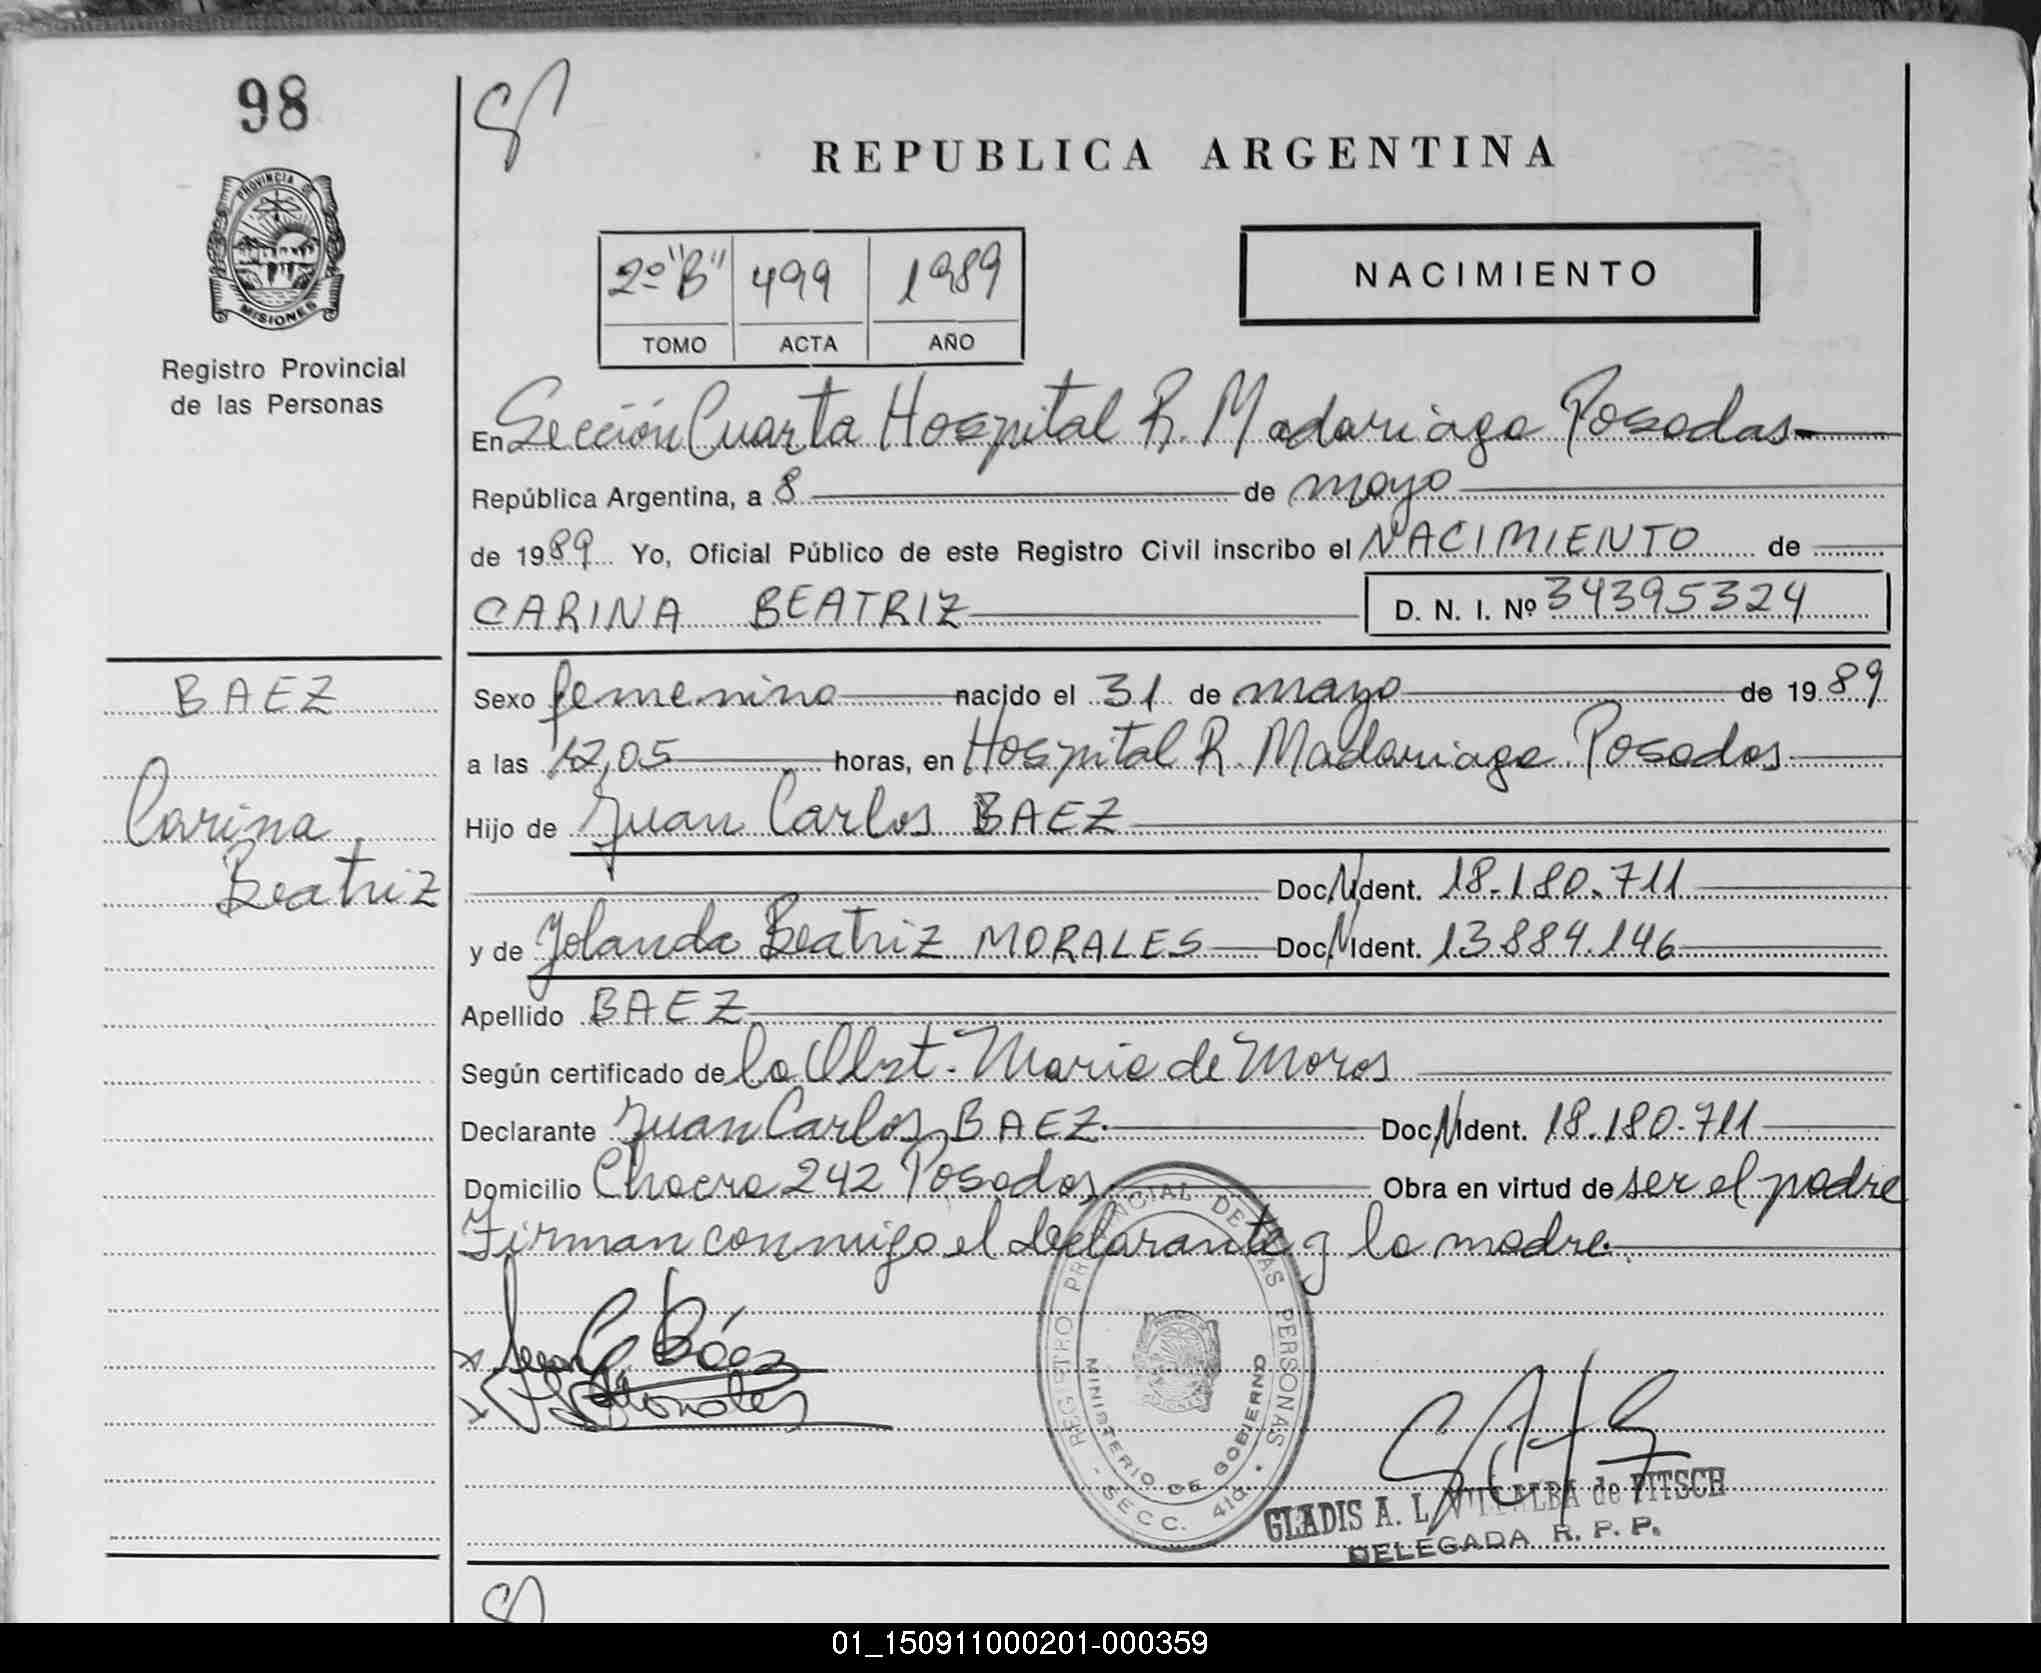 98
REPUBLICA ARGENTINA
PROVINCIA DE
MISIONES
Registro Provincial
de las Personas
2º "B" 499 1989
TOMO ACTA AÑO
NACIMIENTO
En Sección Cuarta Hospital R. Madariaga Posadas
República Argentina, a 8 de mayo
de 1989 Yo, Oficial Público de este Registro Civil inscribo el NACIMIENTO de
CARINA BEATRIZ D. N. I. Nº 34395324
BAEZ
Carina
Beatriz
Sexo femenino nacido el 31 de mayo de 1989
a las 12,05 horas, en Hospital R. Madariaga Posadas
Hijo de Juan Carlos BAEZ
Doc. N. Ident. 18.180.711
y de Yolanda Beatriz MORALES Doc. N. Ident. 13.884.146
Apellido BAEZ
Según certificado de la Obst. Maria de Moros
Declarante Juan Carlos BAEZ. Doc. N. Ident. 18.180.711
Domicilio Chacra 242 Posadas Obra en virtud de ser el padre
Firman conmigo el declarante y la madre.
Juan C. Báez
Morales
REGISTRO PROVINCIAL DE LAS PERSONAS
MINISTERIO DE GOBIERNO
SECC. 4ta.
GLADIS A. L. VILLALBA de PITSCH
DELEGADA R. P. P.
01_150911000201-000359